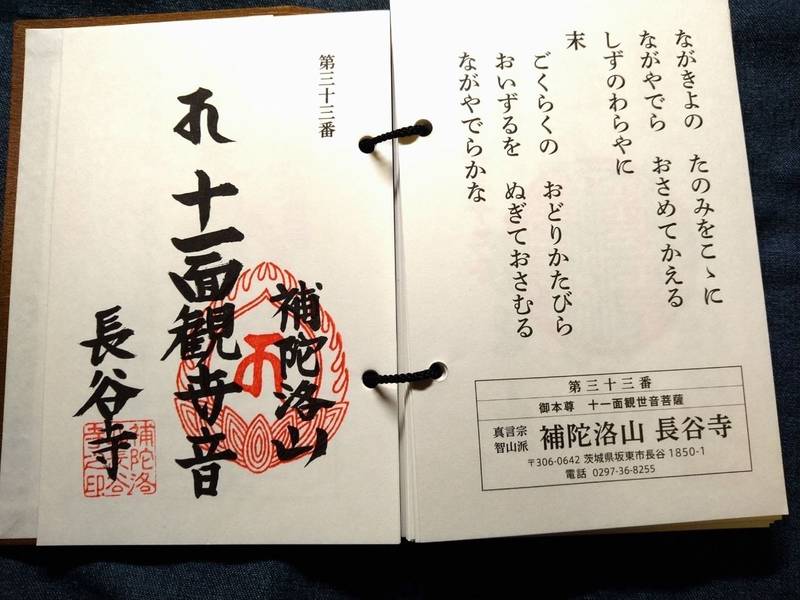 ながきよの　たのみをこゝに
ながやでら　おさめてかえる
しずのわらやに
末
ごくらくの　おどりかたびら
おいずるを　ぬぎておさむる
ながやでらかな
第三十三番
御本尊　十一面観世音菩薩
真言宗
智山派
補陀洛山 長谷寺
〒306-0642 茨城県坂東市長谷 1850-1
電話 0297-36-8255
第三十三番
補陀洛山
十一面観世音
長谷寺
補陀洛